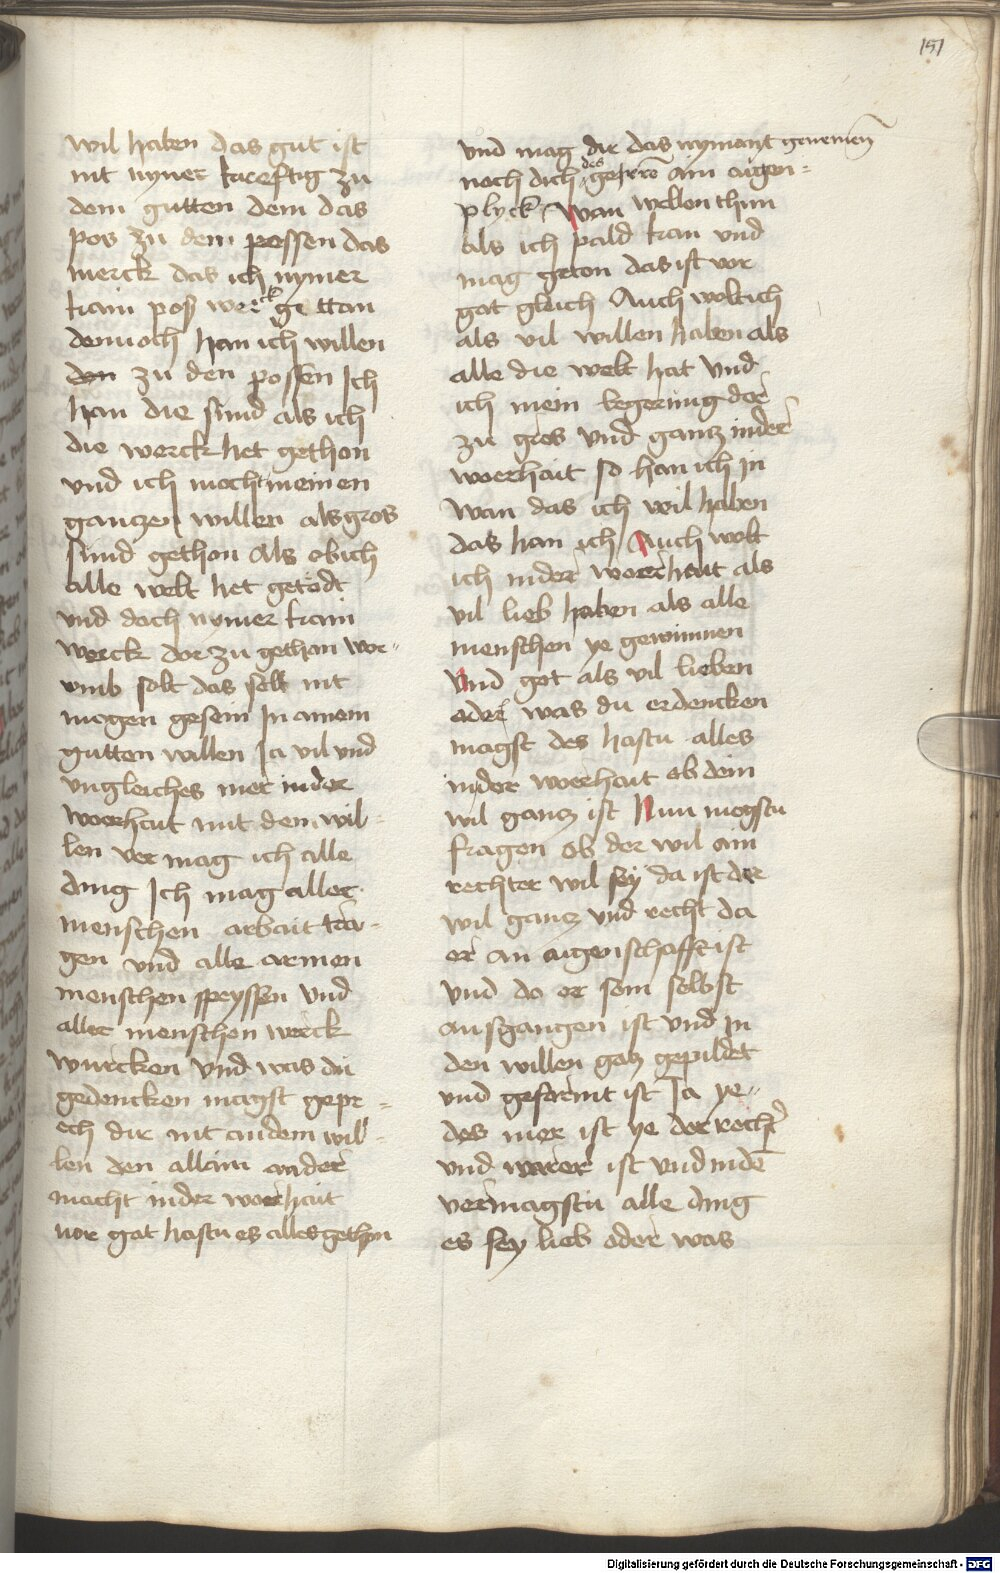 151
wil haben das gut ist
nit myner krefftig zu
dem gutten dem das
pos zu dem possen das
merck das ich nymer
kain pos werck getton
dennoch han ich willen
den zu den possen Ich
han die sund als ich
die werck het gethon
und ich mocht in meinen
gantzen willen als gros
sund gethon Als ob ich
alle welt het getodt
und doch nymer kain
werck dor zu gethan wor-
umb solt das selb nit
mogen gesein In ainem
gutten willen Ja vil und
ungleiches mer in der
worhait mit dem wil-
len vermag ich alle
ding Ich mag aller
menschen arbait tra-
gen und alle armen
menschen speyssen und
aller menschen werck
wurcken und was du
gedencken magst gepr-
ech dir nit an dem wil-
len den allain an der
macht in der worhait
vor got hastu es alles gethon
und mag dir das nymant genemen
noch dich des geirren ain augen-
plyck Wan wellen thun
als ich pald kan und
mag geton das ist vor
got gleich Auch wolt ich
als vil willen haben als
alle die welt hat und
ich mein begerung dor
zu gros und gantz in der
worhait so han ich in
wan das ich wil haben
das han ich Auch wolt
ich in der worhait als
vil lieb haben als alle
menschen ye gewunnen
Und got als vil lieben
oder was du erdencken
magst des hastu alles
in der worhait ob dein
wil gantz ist Nun mogstu
fragen ob der wil ain
rechter wil sey da ist der
wil gantz und recht da
er an aigenschafft ist
und do er sein selbst
ausgangen ist und in
den willen gotz gepildet
und geformt ist Ja ye
des mer ist ye der recht
und warer ist und in dem
vermagstu alle ding
es sey lieb oder was
Digitalisierung gefördert durch die Deutsche Forschungsgemeinschaft - DFG